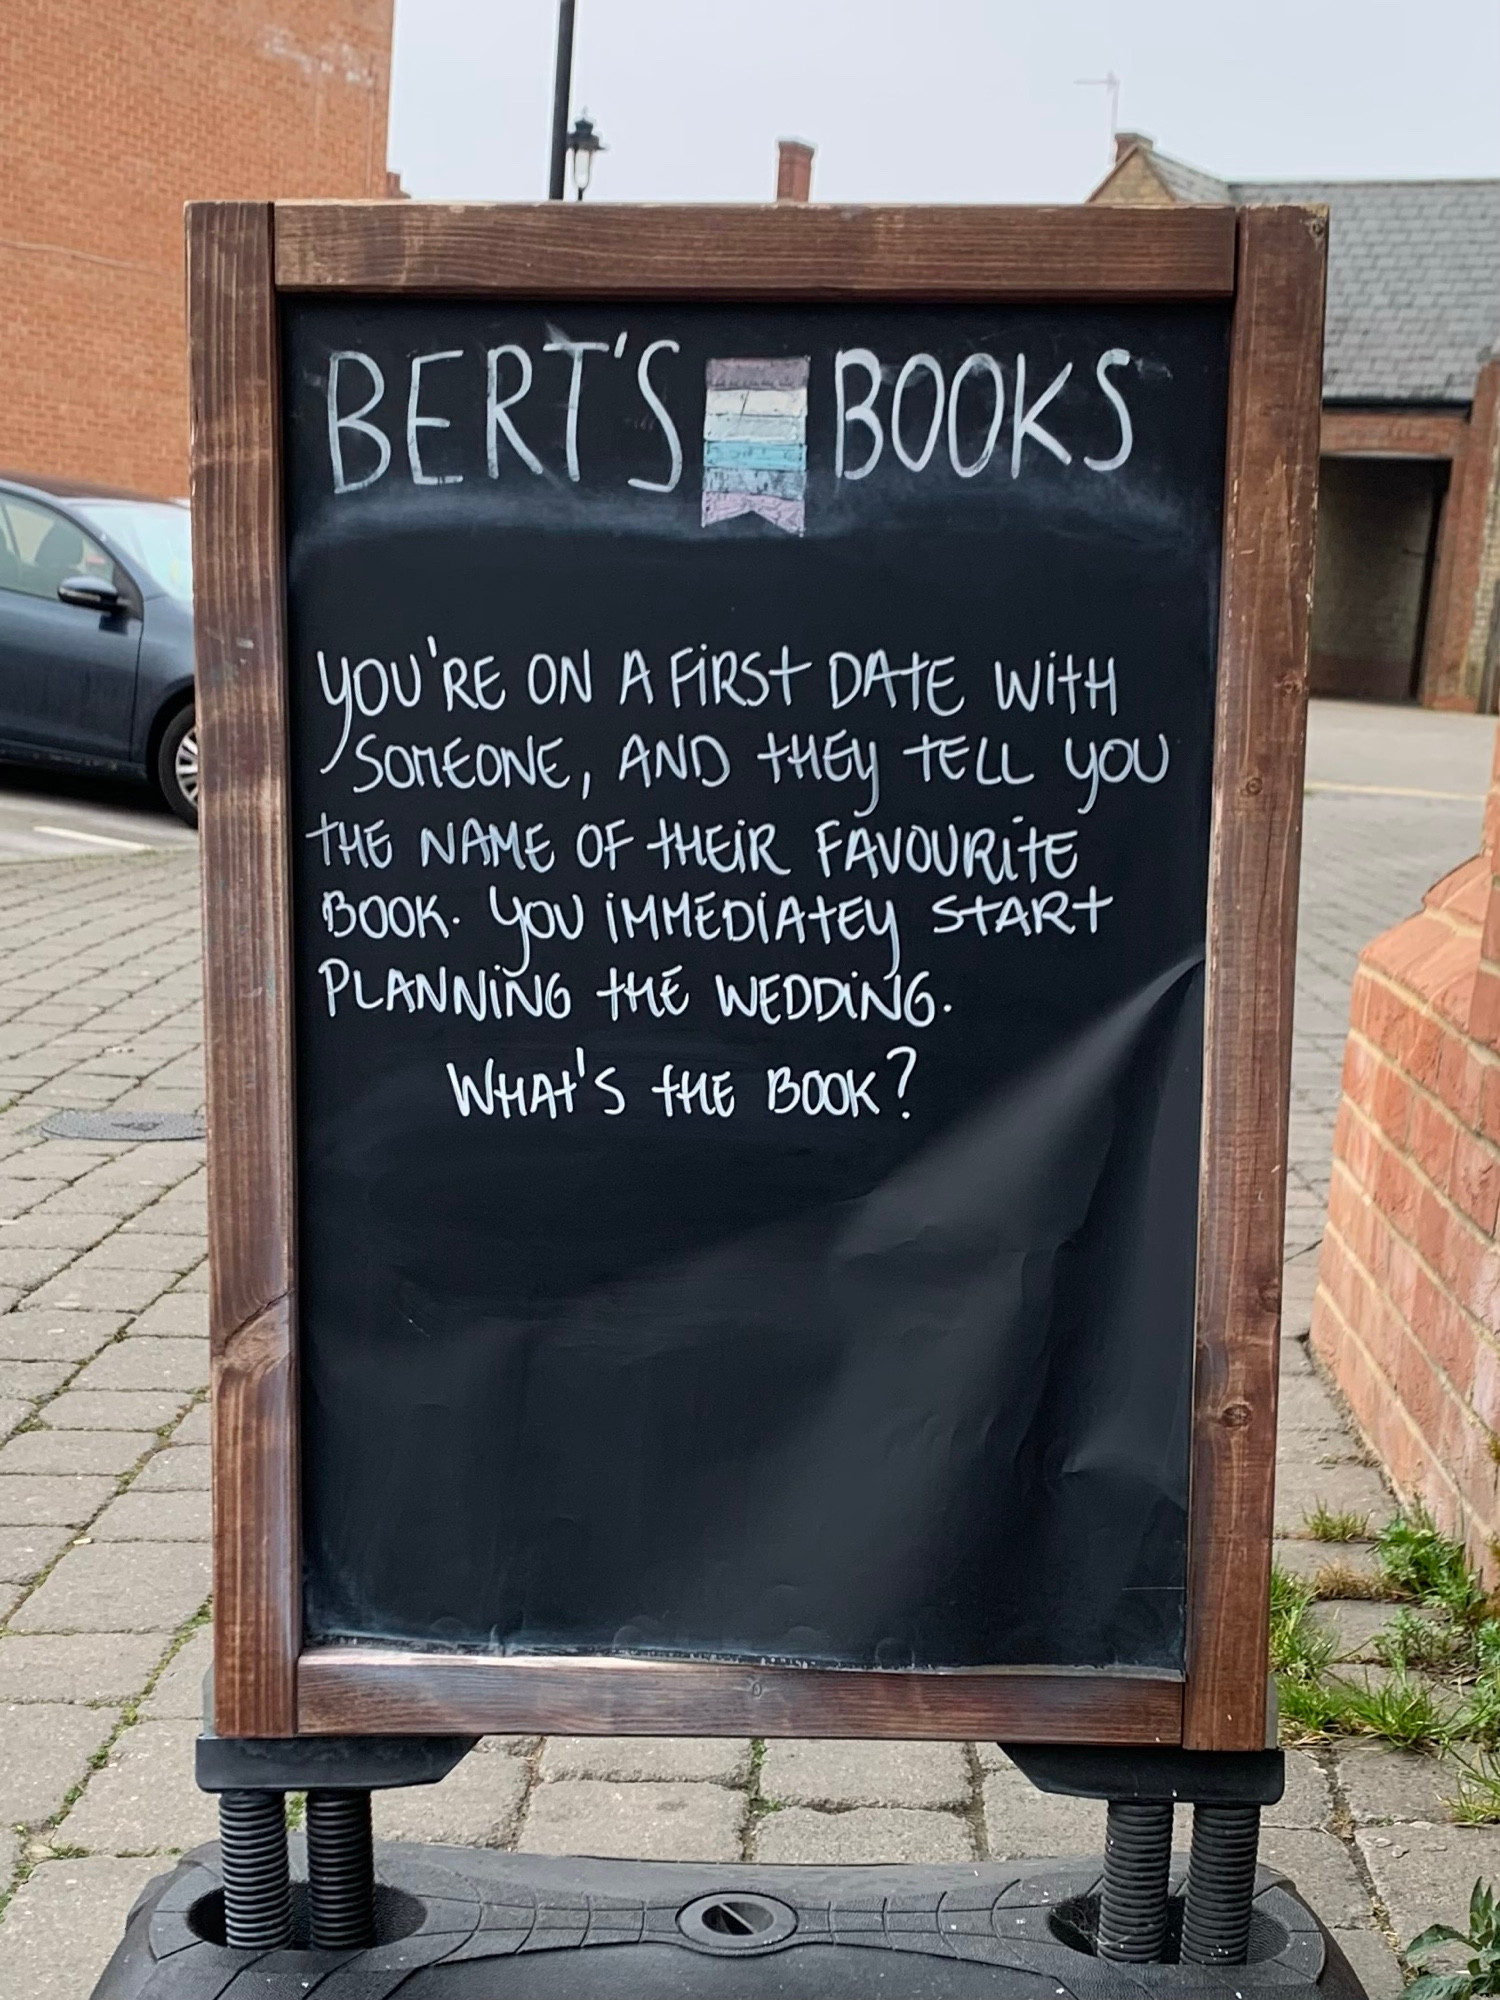 BERT'S BOOKS
YOU'RE ON A FIRST DATE WITH
SOMEONE, AND THEY TELL YOU
THE NAME OF THEIR FAVOURITE
BOOK. YOU IMMEDIATEY START
PLANNING THE WEDDING.
WHAT'S THE BOOK?